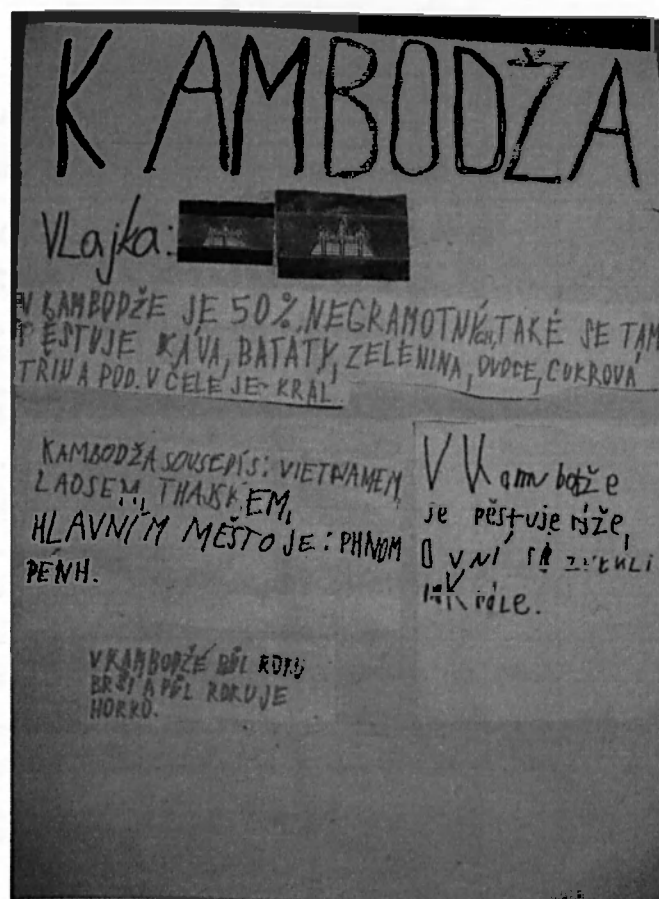 KAMBODŽA
VLajka:
V KAMBODŽE JE 50%, NEGRAMOTNÝCH, TAKÉ SE TAM
PĚSTUJE KÁVA, BATÁTY, ZELENINA, OVOCE, CUKROVÁ
TŘINA POD. V ČELE JE KRÁL.
KAMBODŽA SOUSEDÍ S: VIETNAMEM,
LAOSEM, THAJSKEM,
HLAVNÍM MĚSTO JE: PHNOM
PENH.
V Kambotže
je pěstuje rýže,
V KAMBODŽE PŮL ROKU
BRŠÍ A PŮL ROKU JE
HORKO.